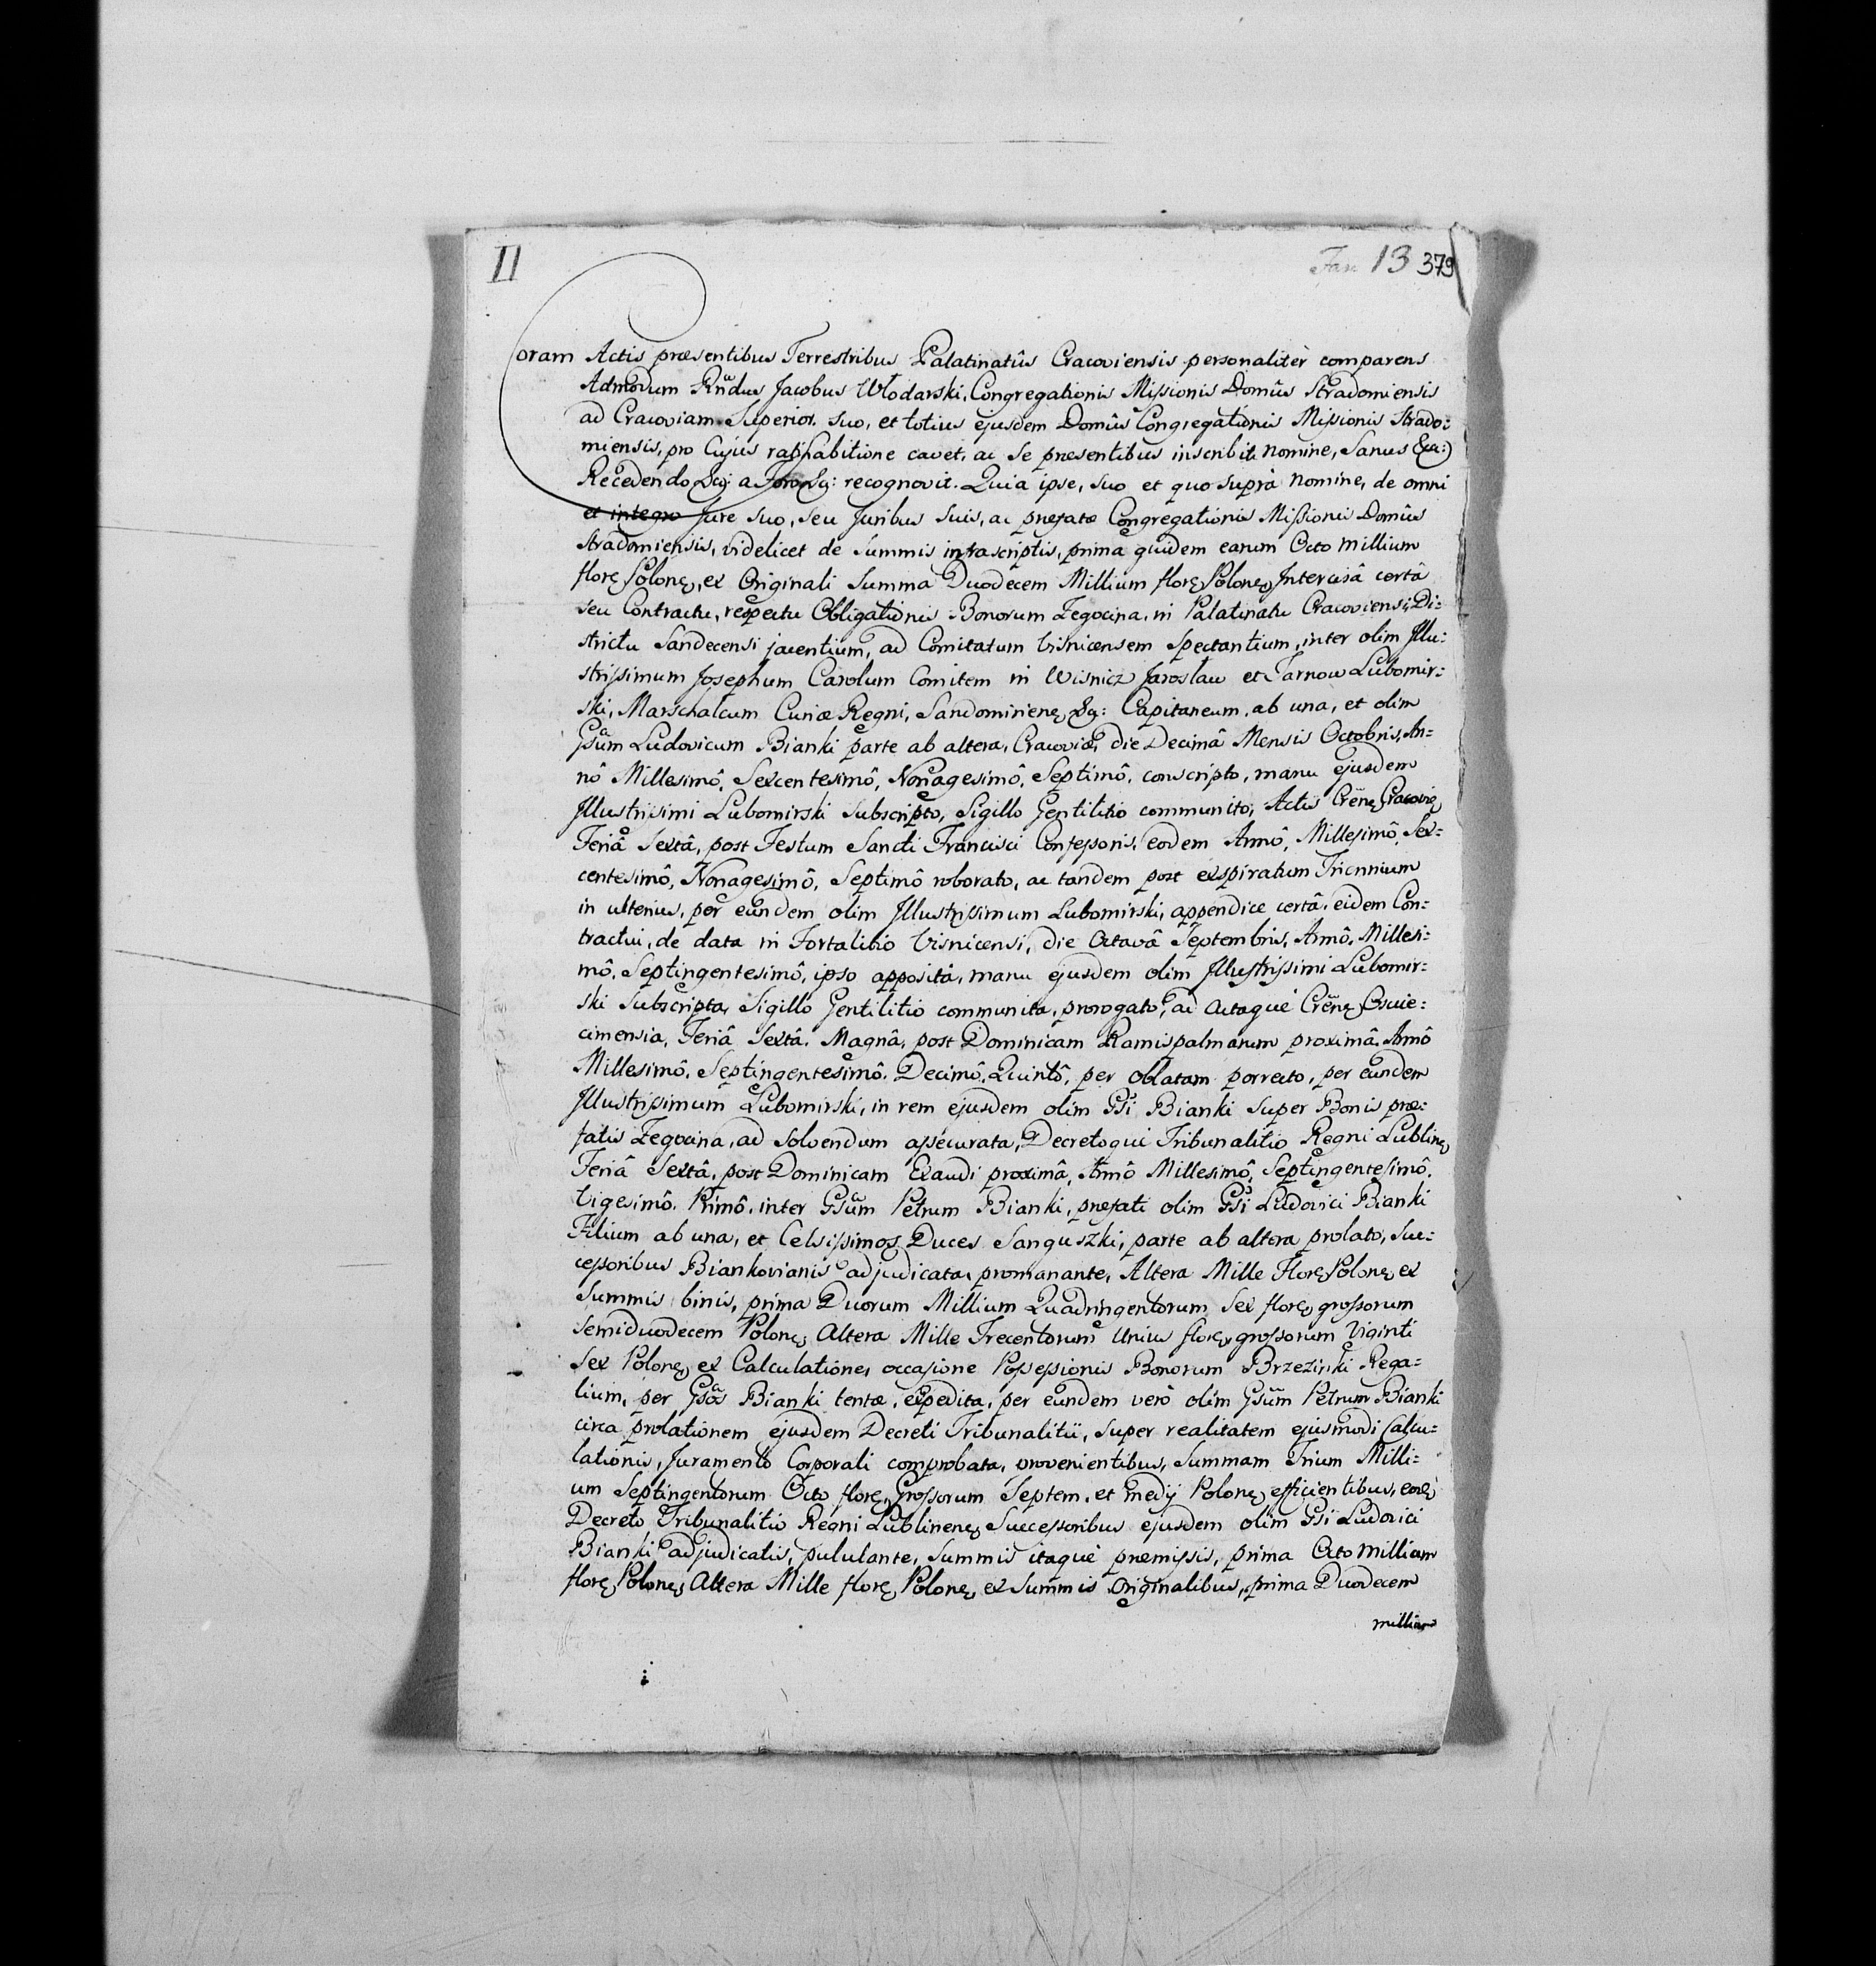 II
Jan 13 379
Coram Actis præsentibus Terrestribus Palatinatûs Cracoviensis personalitèr comparens
Admodum Rndus Jacobus Wlodarski, Congregationis Missionis Domûs Stradomiensis
ad Cracoviam Superior. suo, et totius ejusdem Domûs Congregationis Missionis Strado:
miensis, pro Cujus ratihabitione cavet, ac se præsentibus inscribit nomine, Sanus &a:)
Recedendo &a: a Foro &a: recognovit. Quia ipse, suo et quo suprà nomine, de omni
et integro Jure suo, seu Juribus suis, ac præfatæ Congregationis Missionis Domûs
Stradomiensis, videlicet de Summis infrascriptis, prima quidem earum Octo millium
flore Polone, ex Originali Summa Duodecem Millium flore Polone, Intercisâ certâ
seu Contractu, respectu Obligationis Bonorum Zegocina, in Palatinatu Cracoviensi, Di:
strictu Sandecensi jacentium, ad Comitatum Visnicensem Spectantium, inter olim Illu:
strissimum Josephum Carolum Comitem in Wisnicz Jaroslaw et Tarnow Lubomir:
ski, Marschalcum Curiæ Regni, Sandomiriene &a: Capitaneum, ab una, et olim
Gsum Ludovicum Bianki parte ab altera, Cracoviæ, die Decimâ Mensis Octobris, An=
nô Millesimô, Sexcentesimô, Nonagesimô, Septimô, conscripto, manu ejusdem
Illustrissimi Lubomirski Subscripto, Sigillo Gentilitio communito, Actis Crene Cracovie
Feriâ Sextâ, post Festum Sancti Francisci Confessoris, eodem Annô, Millesimô, Sex=
centesimô, Nonagesimô, Septimô roborato, ac tandem post exspiratum Triennium
in ulterius, per eundem olim Illustrissimum Lubomirski, appendice certâ, eidem Con=
tractui, de data in Fortalitio Visnicensi, die Octavâ Septembris, Annô, Millesi=
mô, Septingentesimô, ipso appositâ, manu ejusdem olim Illustrissimi Lubomir=
ski Subscripta, Sigillo Gentilitio communita, prorogato, ad Actaque Crene Oswie=
cimensia, Feriâ Sextâ Magnâ, post Dominicam Ramispalmarum proximâ, Annô
Millesimô, Septingentesimô, Decimô, Quintô, per oblatam porrecto, per eundem
Illustrissimum Lubomirski, in rem ejusdem olim Gsi Bianki Super Bonis præ=
fatis Zegocina, ad solvendum assecurata, Decretoqui Tribunalitio Regni Lubline
Feriâ Sextâ, post Dominicam Exaudi proximâ, Annô Millesimô, Septingentesimô,
Vigesimô, Primô, inter Gsum Petrum Bianki, præfati olim Gsi Ludovici Bianki
Filium ab una, et Celsissimos Duces Sanguszki, parte ab altera prolato, Suc=
cessoribus Biankovianis adjudicata, promanante, Altera Mille Flore Polone ex
Summis binis, prima Duorum Millium Quadringentorum Sex flore, grossorum
semiduodecem Polone, Altera Mille Trecentorum Unius flore, grossorum Viginti
Sex Polone, ex Calculatione, occasione Possessionis Bonorum Brzezinki Rega=
lium, per Gsos Bianki tentæ, expedita, per eundem verò olim Gsum Petrum Bianki
circa prolationem ejusdem Decreti Tribunalitii, super realitatem ejusmodi Calcu=
lationis, Juramento Corporali comprobata, provenientibus, Summam Trium Milli=
um Septingentorum Octo flore, Grossorum Septem, et medij Polone efficientibus, eodē
Decreto Tribunalitio Regni Lublinene Successoribus ejusdem olim Gsi Ludovici
Bianki adjudicatis, pululante, Summis itaquè præmissis, prima Octo millium
flore Polone, Altera Mille flore Polone, ex Summis Originalibus, prima Duodecem
millium